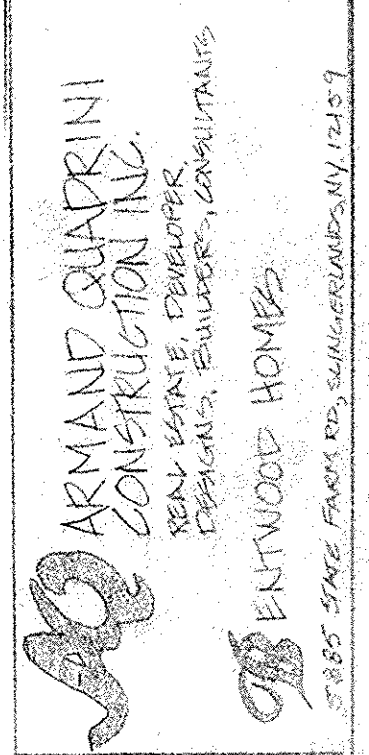 AQ ARMAND QUADRINI
CONSTRUCTION INC.
REAL ESTATE, DEVELOPER,
DESIGNS, BUILDERS, CONSULTANTS
BENTWOOD HOMES
STATE FARM RD, SLINGERLANDS, NY, 12159